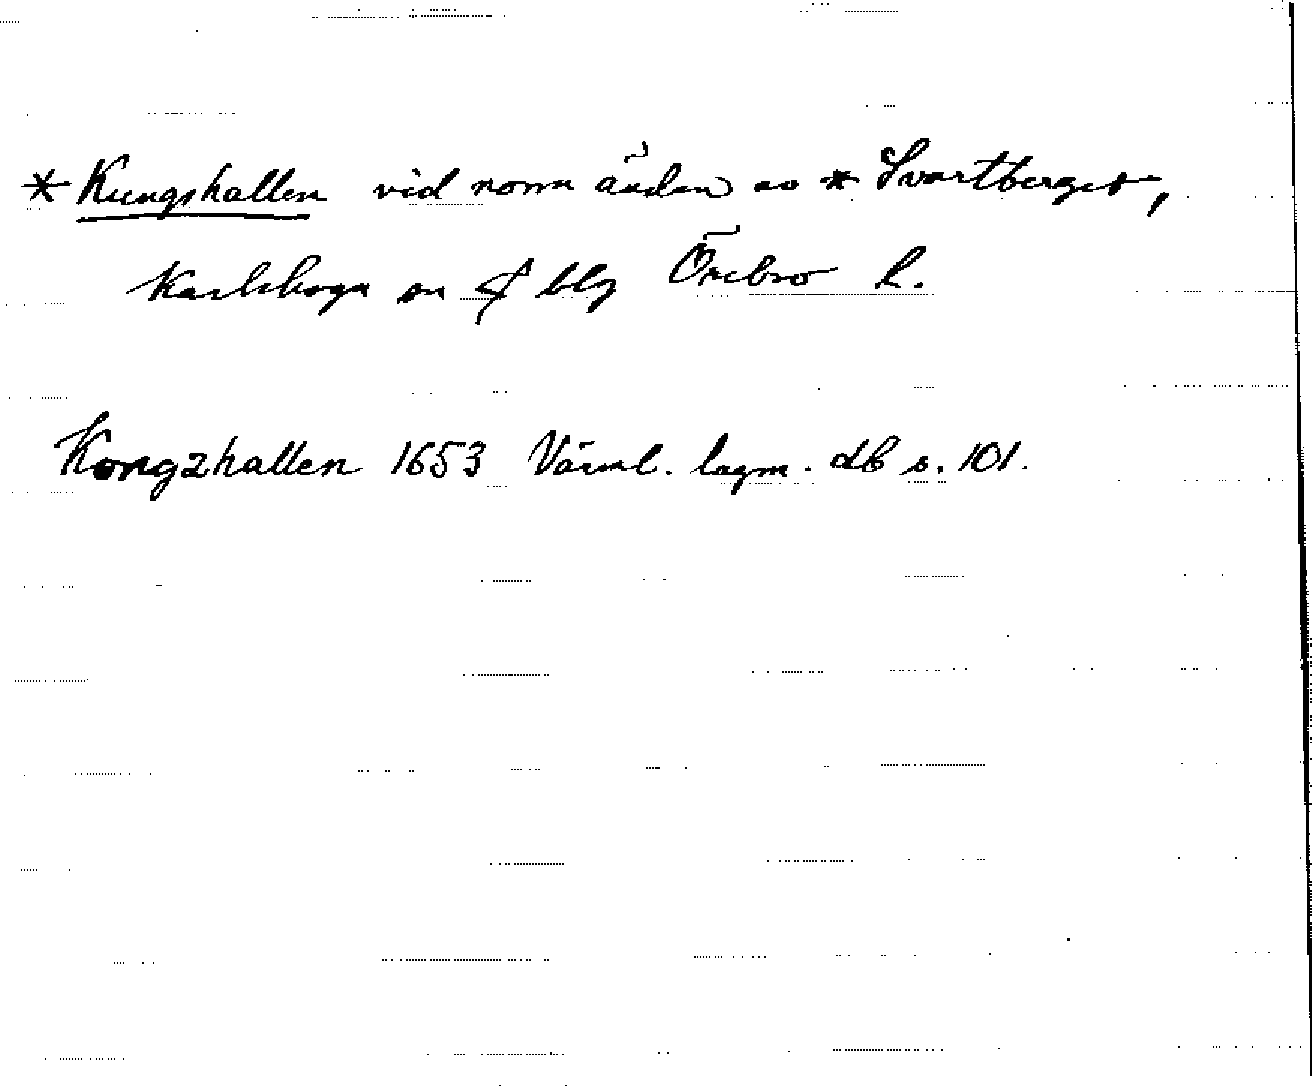 * Kungshallen vid norra ändan av * Svartberget,
Karlskoga sn & blg Örebro L.
Kongzhallen 1653 Värml. lagm. db s. 101.